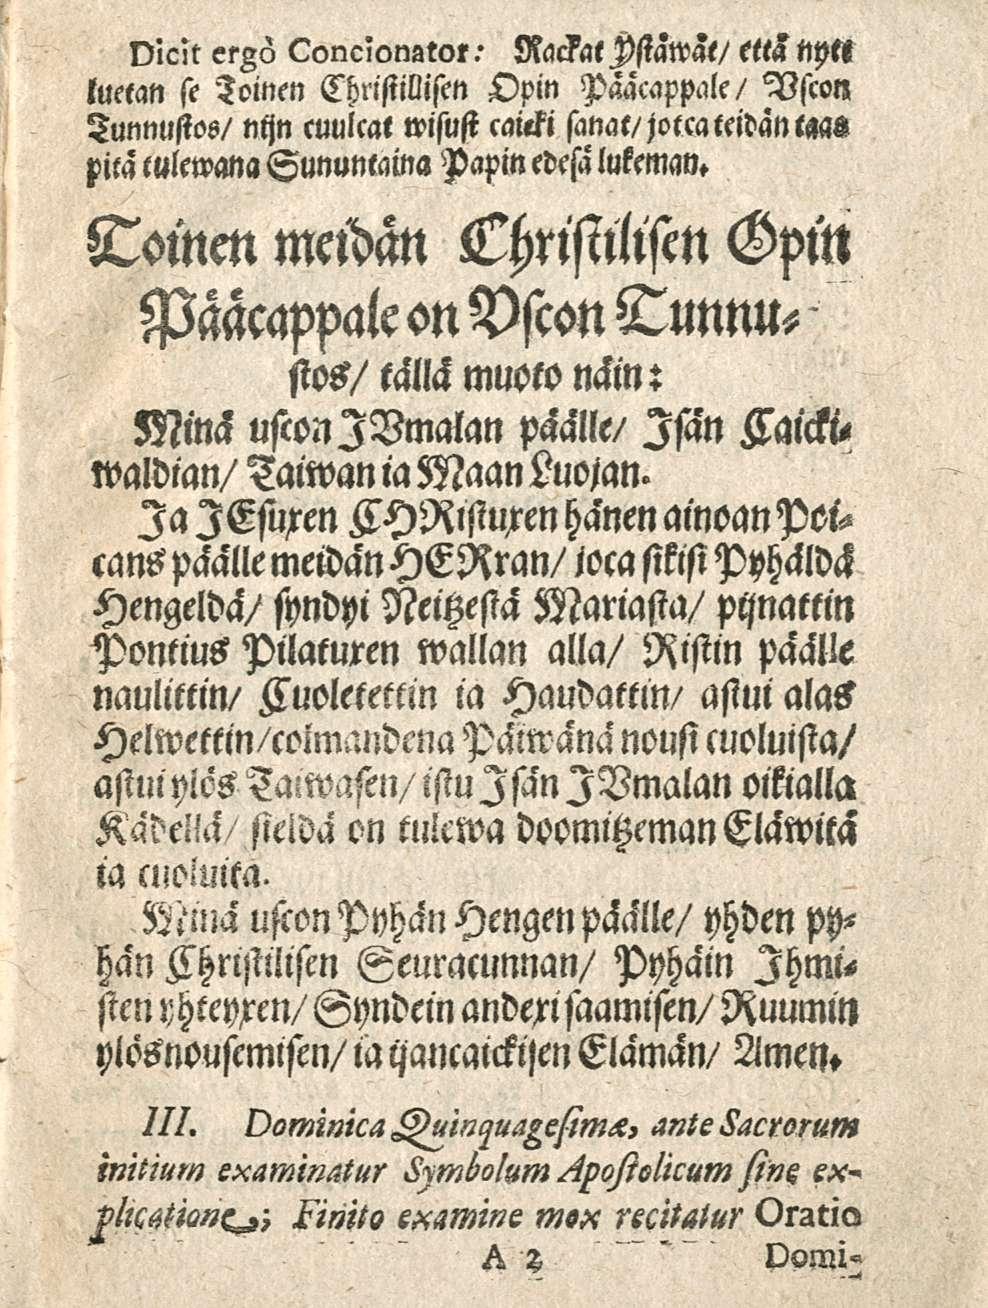 Dicit ergò Concionator: Rackat Ystäwät/ että nytt
luetan se Toinen Christillisen Opin Pääcappale/ Vscon
Tunnustos/ nijn cuulcat wisust caicki sanat/ jotca teidän taas
pitä tulewana Sununtaina Papin edesä lukeman.
Toinen meidän Christilisen Opin
Pääcappale on Vscon Tunnu-
stos/ tällä muoto näin:
Minä uscon JVmalan päälle/ Isän Caicki-
waldian/ Taiwan ia Maan Luojan.
Ja JEsuxen CHRistuxen hänen ainoan Poi-
cans päälle meidän HERran/ joca sikisi Pyhäldä
Hengeldä/ syndyi Neitzestä Mariasta/ pijnattin
Pontius Pilatuxen wallan alla/ Ristin päälle
naulittin/ Cuoletettin ia Haudattin/ astui alas
Helwettin/colmandena Päiwänä nousi cuoluista/
astui ylös Taiwasen/ istu Isän JVmalan oikialla
Kädellä/ sieldä on tulewa doomitzeman Eläwitä
ia cuoluita.
Minä uscon Pyhän Hengen päälle/ yhden py-
hän Christilisen Seuracunnan/ Pyhäin Ihmi-
sten yhteyxen/ Syndein andexi saamisen/ Ruumin
ylösnousemisen/ ia ijancaickisen Elämän/ Amen.
III. Dominica Quinquagesimæ, ante Sacrorum
initium examinatur Symbolum Apostolicum sine ex-
plicatione; Finito examine mox recitatur Oratio
A 2 Domi-